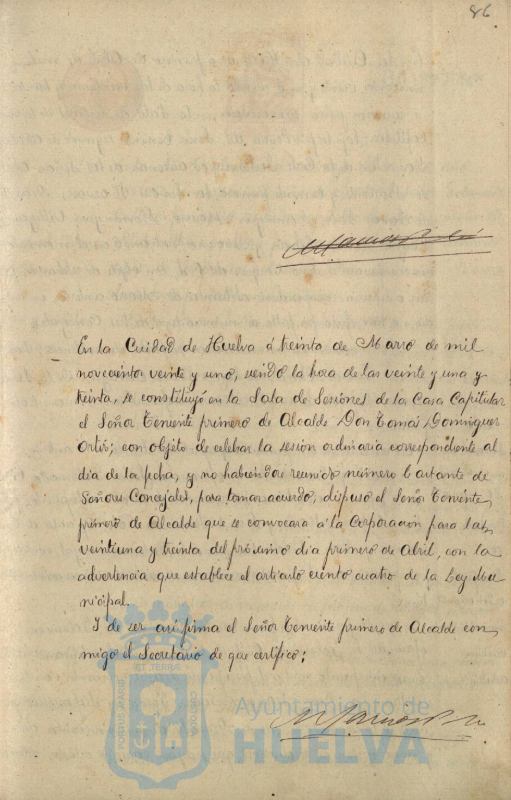 86
En la Cuidad de Huelva á treinta de Marzo de mil
novecientos veinte y uno, siendo la hora de las veinte y una y
treinta, se constituyó en la Sala de Sesiones de la Casa Capitular
el Señor Teniente primero de Alcalde Don Tomás Dominguez
Ortiz; con objeto de celebrar la sesión ordinaria correspondiente al
dia de la fecha, y no habiendose reunido número bastante de
Señores Concejales, para tomar acuerdo, dispuso el Señor Teniente
primero de Alcalde que se convocara á la Corporación para las
veintiuna y treinta del próximo dia primero de Abril, con la
advertencia que establece el articulo ciento cuatro de la Ley Mu
nicipal.
I de ser asi firma el Señor Teniente primero de Alcalde con
migo el Secretario de que certifico;
PORTUS MARIS
ET TERRÆ
CUSTODIA
Ayuntamiento de
HUELVA